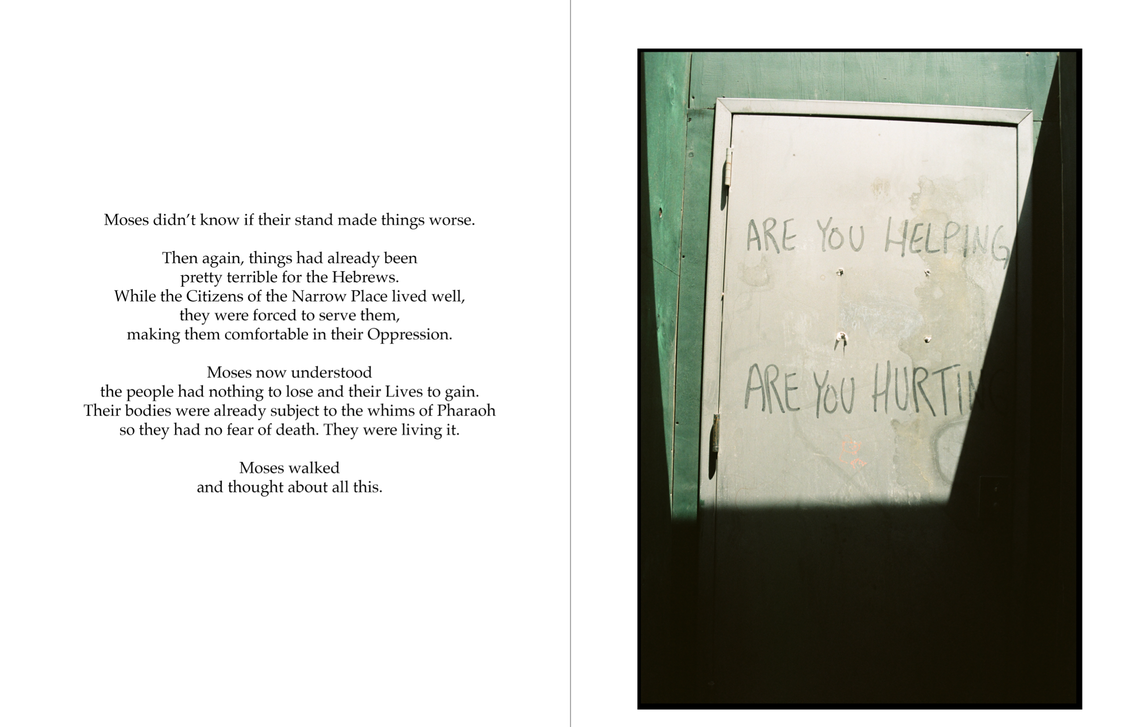 Moses didn’t know if their stand made things worse.
Then again, things had already been
pretty terrible for the Hebrews.
While the Citizens of the Narrow Place lived well,
they were forced to serve them,
making them comfortable in their Oppression.
Moses now understood
the people had nothing to lose and their Lives to gain.
Their bodies were already subject to the whims of Pharaoh
so they had no fear of death. They were living it.
Moses walked
and thought about all this.
ARE YOU HELPING
ARE YOU HURTIN